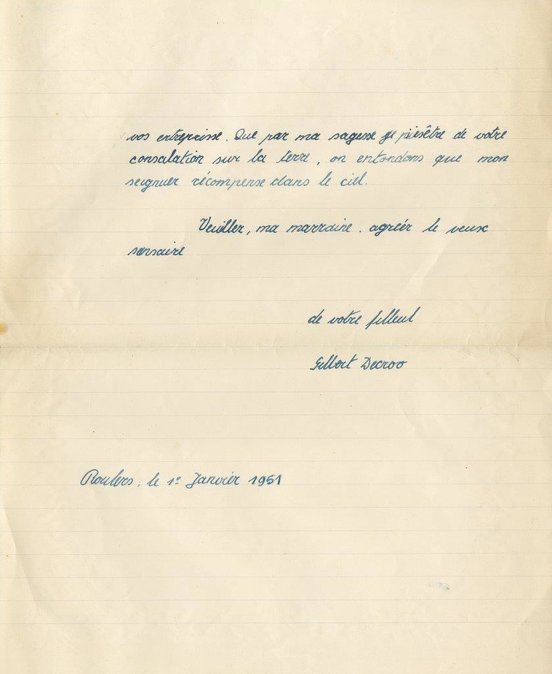 vos entreprise. Que par ma sagesse je piésêtre de votre
consalation sur la terre, on entendons que mon
seignuer récompense dans le ciel.
Veuiller, ma marraine. agréer le veux
sensaire
de votre filleul
Gilbert Decroo
Roulers, le 1e Janvier 1951